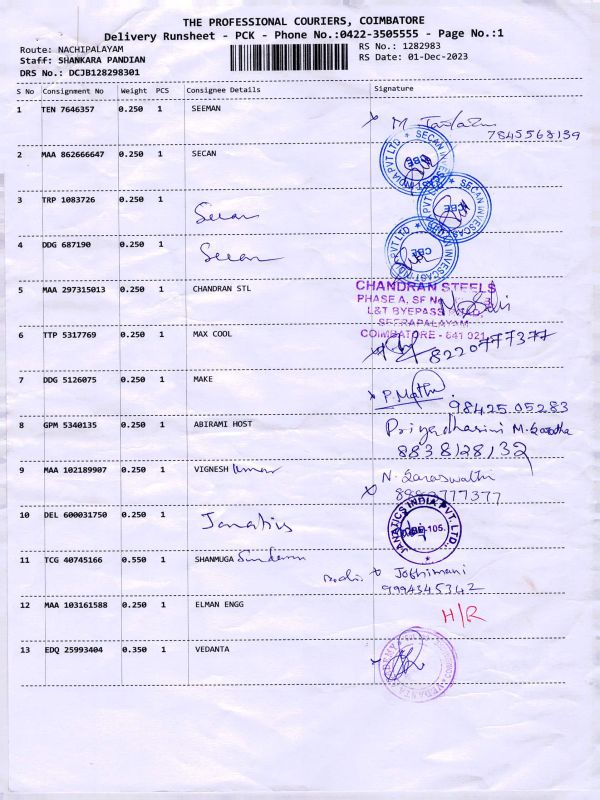 THE PROFESSIONAL COURIERS, COIMBATORE
Delivery Runsheet - PCK - Phone No.:0422-3505555 - Page No.:1
Route: NACHIPALAYAM
RS No.: 1282983
Staff: SHANKARA PANDIAN
RS Date: 01-Dec-2023
DRS No.: DCJB128298301
S No Consignment No Weight PCS Consignee Details Signature
1 TEN 7646357 0.250 1 SEEMAN
7845568139
2 MAA 862666647 0.250 1 SECAN
SECAN INVESCAST INDIA PVT LTD
CBE
3 TRP 1083726 0.250 1 Secan
SECAN INVESCAST INDIA PVT LTD
CBE
4 DDG 687190 0.250 1 Secan
SECAN INVESCAST INDIA PVT LTD
CBE
5 MAA 297315013 0.250 1 CHANDRAN STL
CHANDRAN STEELS
PHASE A, SF No
L&T BYEPASS
SEERAPALAYAM
COIMBATORE - 641 021
6 TTP 5317769 0.250 1 MAX COOL
8220777377
7 DDG 5126075 0.250 1 MAKE
P. Mathu
98425 05283
8 GPM 5340135 0.250 1 ABIRAMI HOST
Priyadharsini M.
8838128132
9 MAA 102189907 0.250 1 VIGNESH Kumar
N. Saraswathi
10 DEL 600031750 0.250 1 Janatics
JANATICS INDIA PVT. LTD.
11 TCG 40745166 0.550 1 SHANMUGA Sundaram
Jothimani
9994345342
12 MAA 103161588 0.250 1 ELMAN ENGG
H/R
13 EDQ 25993404 0.350 1 VEDANTA
VEDANTA